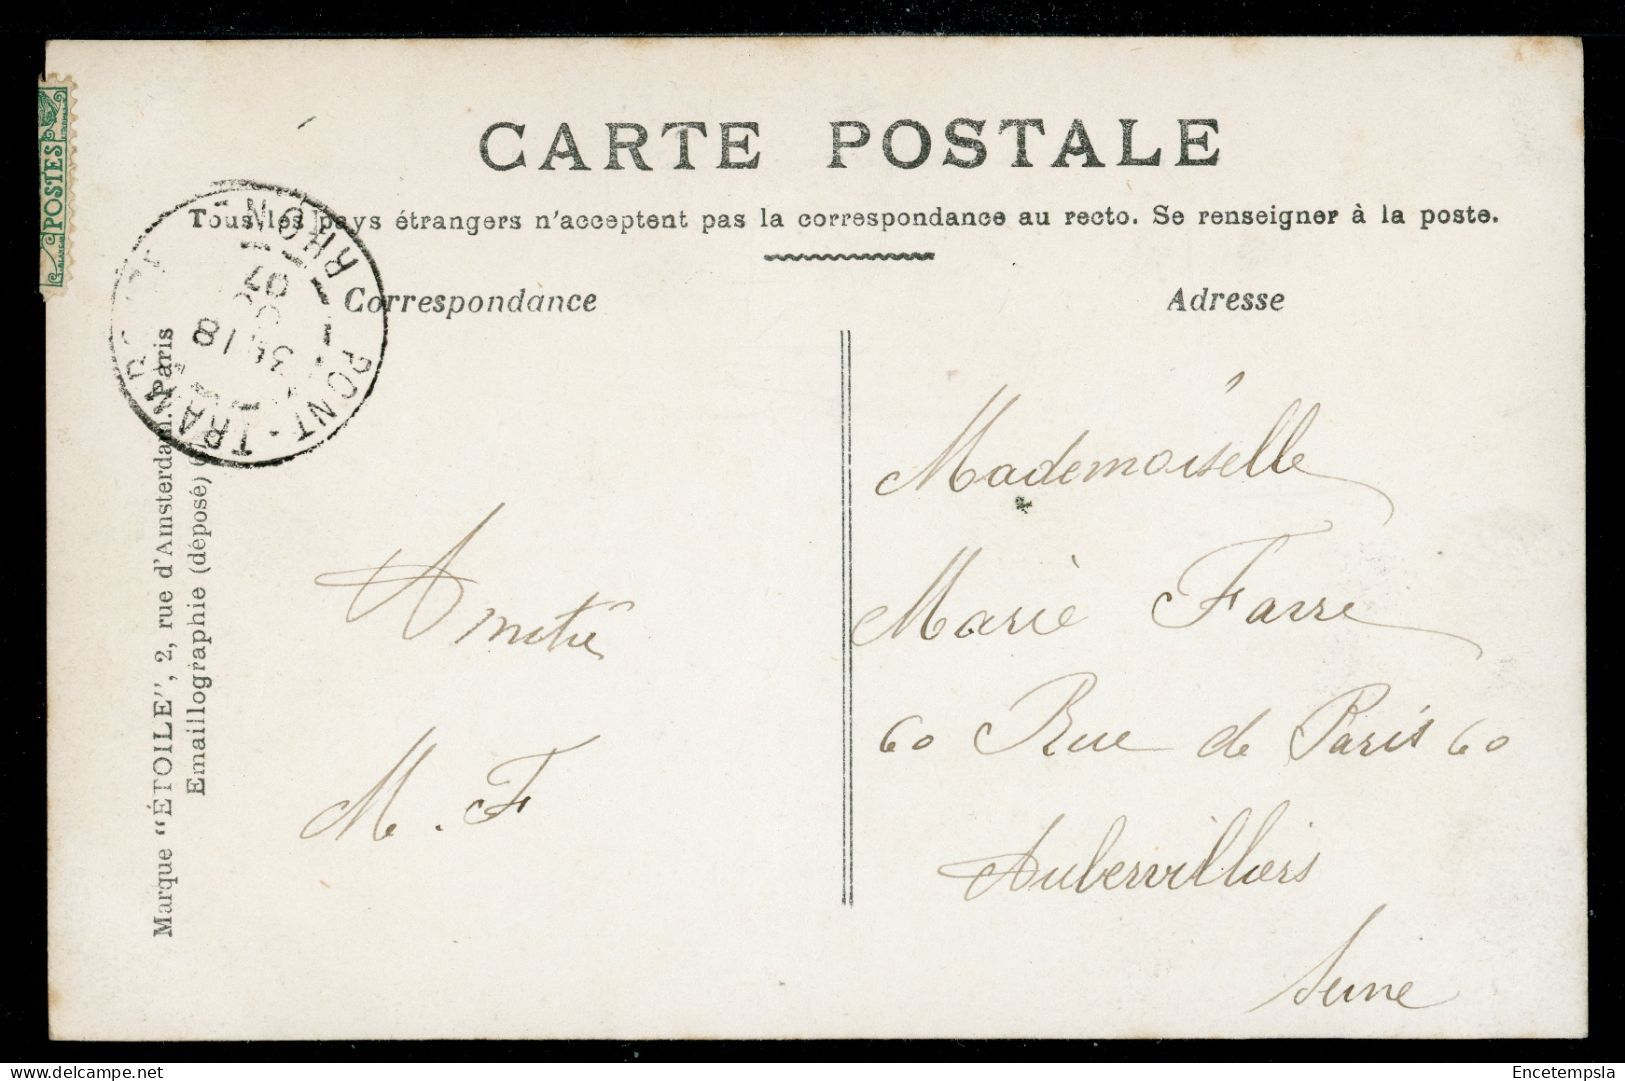 CARTE POSTALE
Tous les pays étrangers n'acceptent pas la correspondance au recto. Se renseigner à la poste.
Correspondance
Adresse
POSTES
RHONE
PONT-TRAMB
18
07
Marque "ÉTOILE", 2, rue d'Amsterdam. Paris
Emaillographie (déposé)
Amitié
M. F
Mademoiselle
Marie Farre
60 Rue de Paris 60
Aubervilliers
Seine
delcampe.net
Encetempsla